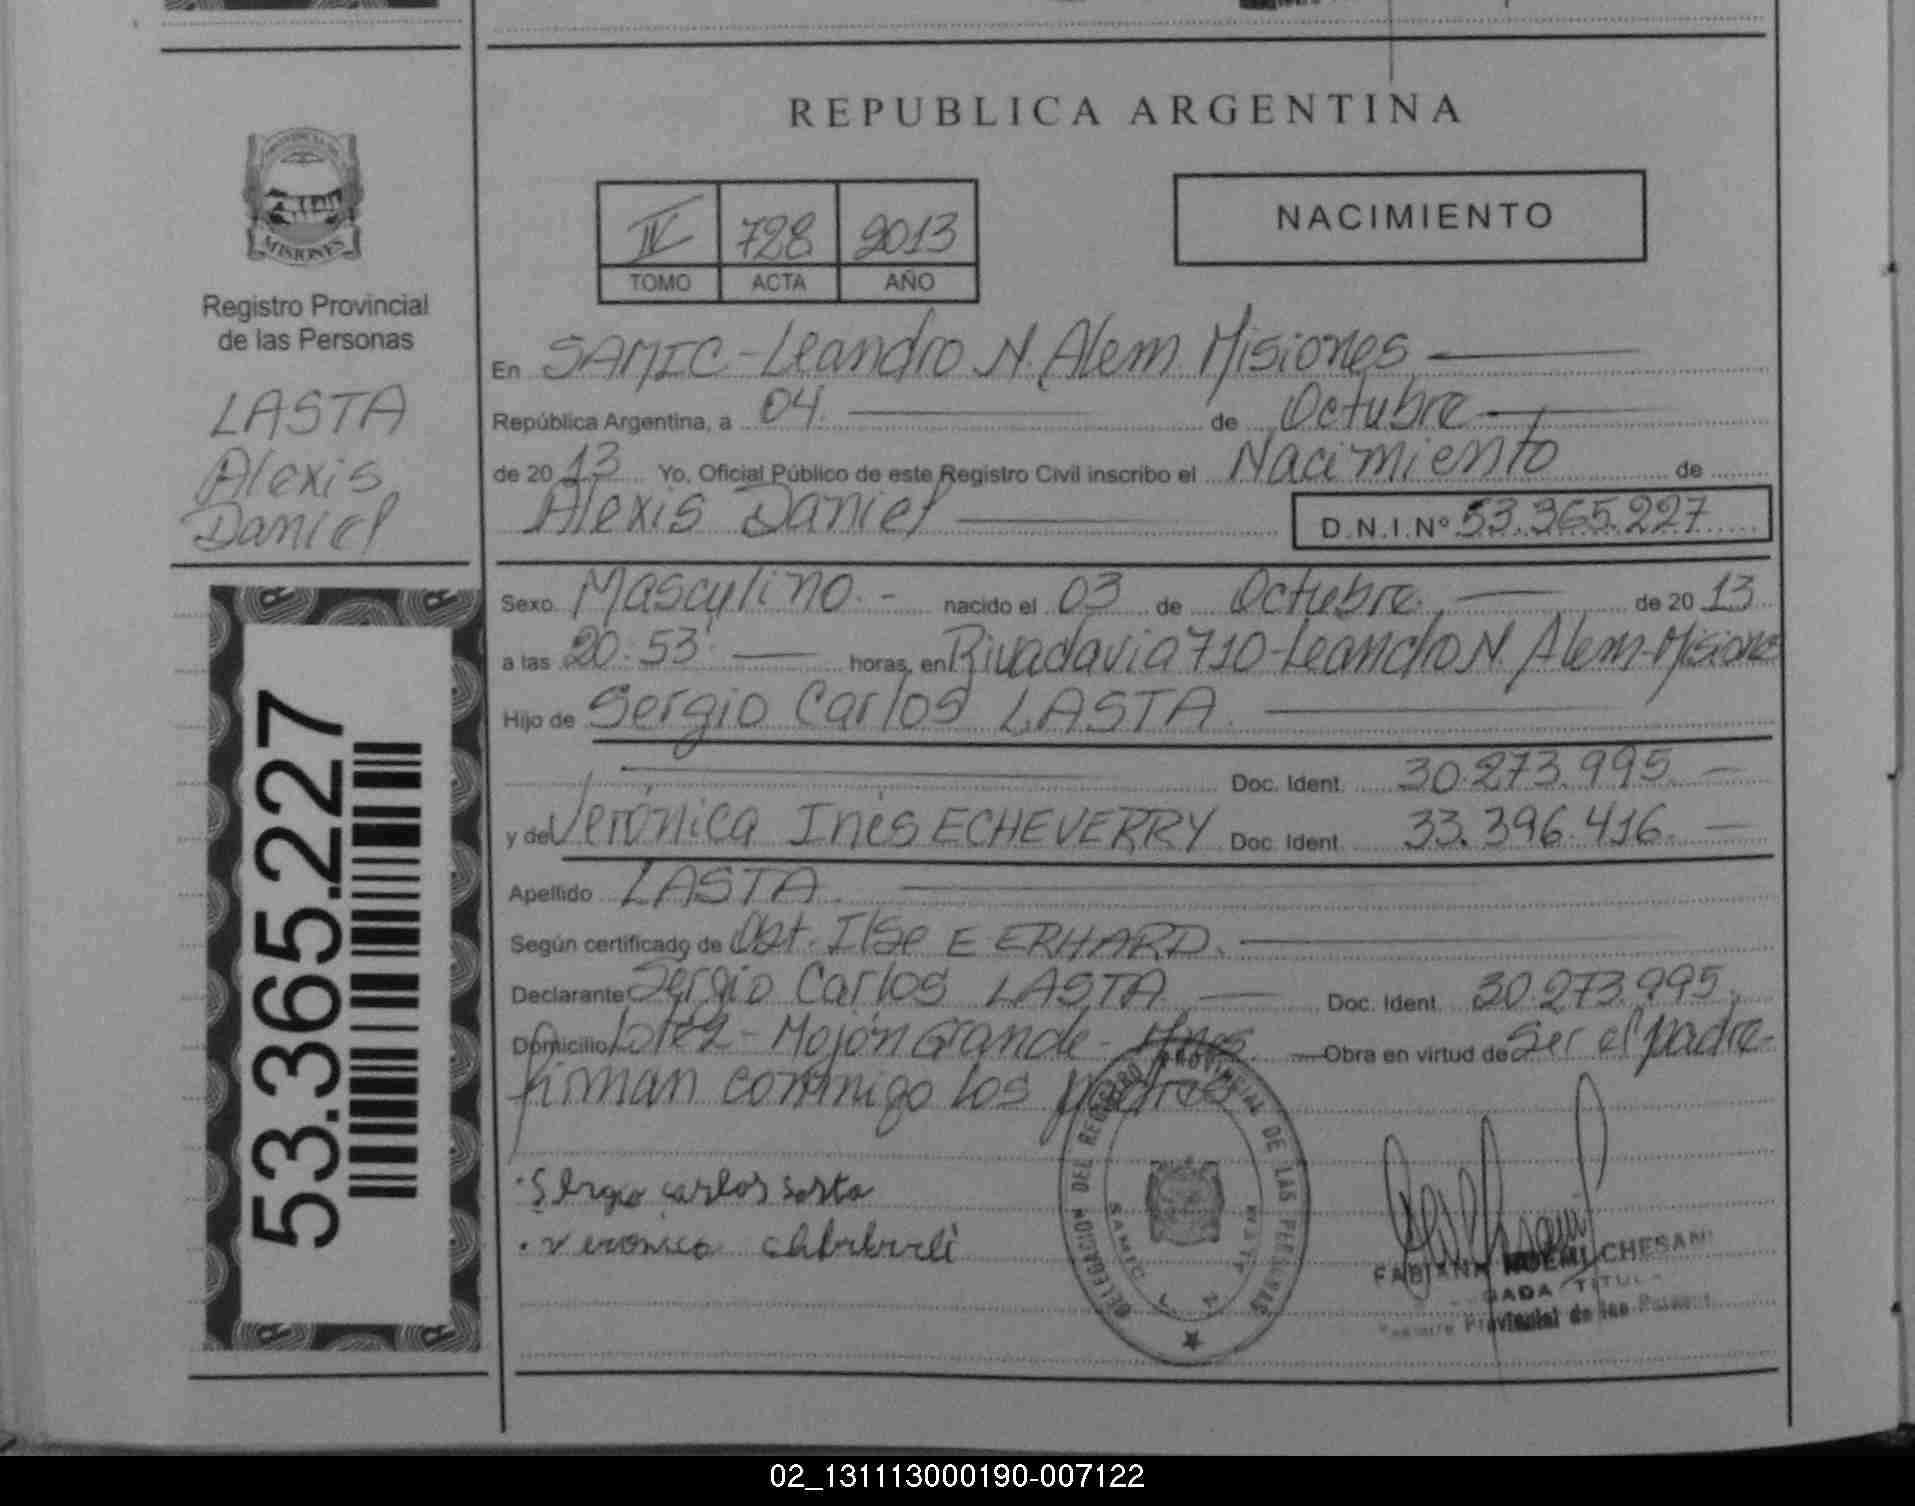 REPUBLICA ARGENTINA
MISIONES
Registro Provincial
de las Personas
LASTA
Alexis
Daniel
53.365.227
IV 728 2013
TOMO ACTA AÑO
NACIMIENTO
En SAMIC - Leandro N. Alem Misiones
República Argentina, a 04. de Octubre
de 20 13 Yo, Oficial Público de este Registro Civil inscribo el Nacimiento de
Alexis Daniel D.N.I.Nº 53.365.227
Sexo Masculino. - nacido el 03 de Octubre. de 20 13
a las 20:53 horas, en Rivadavia 710 - Leandro N. Alem - Misiones
Hijo de Sergio Carlos LASTA
Doc. Ident. 30.273.995
y de Verónica Inés ECHEVERRY Doc. Ident. 33.396.416.
Apellido LASTA
Según certificado de Obst. Ilse E ERHARD.
Declarante Sergio Carlos LASTA Doc. Ident. 30.273.995
Domicilio Lote 2 - Mojón Grande - Mnes Obra en virtud de ser el padre
firman conmigo los padres
Sergio Carlos
Veronica
DELEGACION DEL REGISTRO PROVINCIAL DE LAS PERSONAS
SAMIC
FABIANA NOEMI CHESANI
Provincial de las
02_131113000190-007122